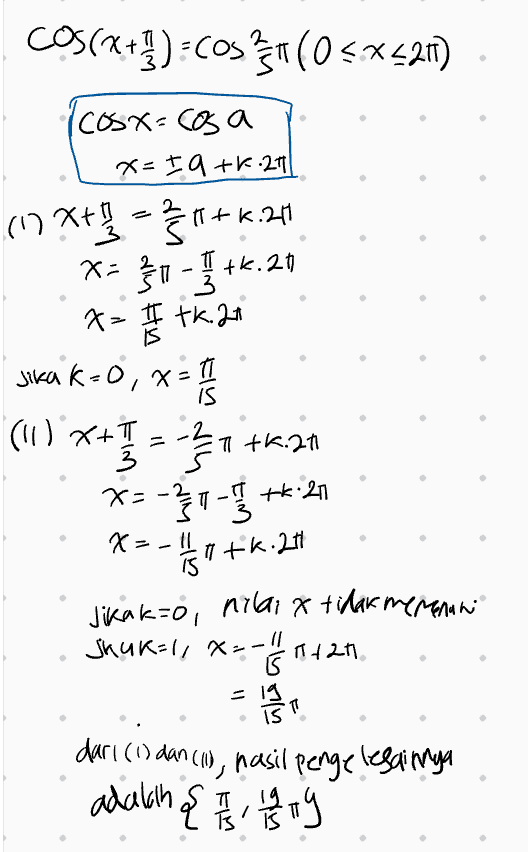 cos(x+π/3)=cos 2/5 π (0 ≤ x ≤ 2π)
cosx = cos a
x = ± a + k·2π
(I) x+π/3 = 2/5 π + k.2π
x = 2/5 π - π/3 + k.2π
x = π/15 + k.2π
Jika k=0, x = π/15
(II) x+π/3 = -2/5 π + k.2π
x = -2/5 π - π/3 + k·2π
x = -11/15 π + k·2π
Jika k=0, nilai x tidak memenuhi
Jika k=1, x = -11/15 π + 2π
= 19/15 π.
dari (I) dan (II), hasil pengelesainnya
adalah { π/15, 19/15 π}